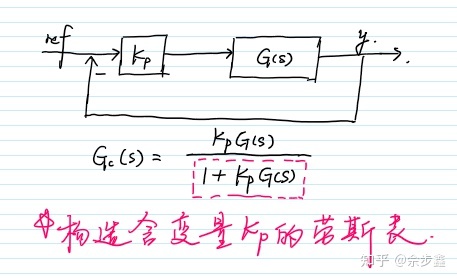 ref Kp G(s) y.
−
KpG(s)
Gc(s) =
1 + KpG(s)
构造含变量Kp的劳斯表.
知乎 @余步鑫